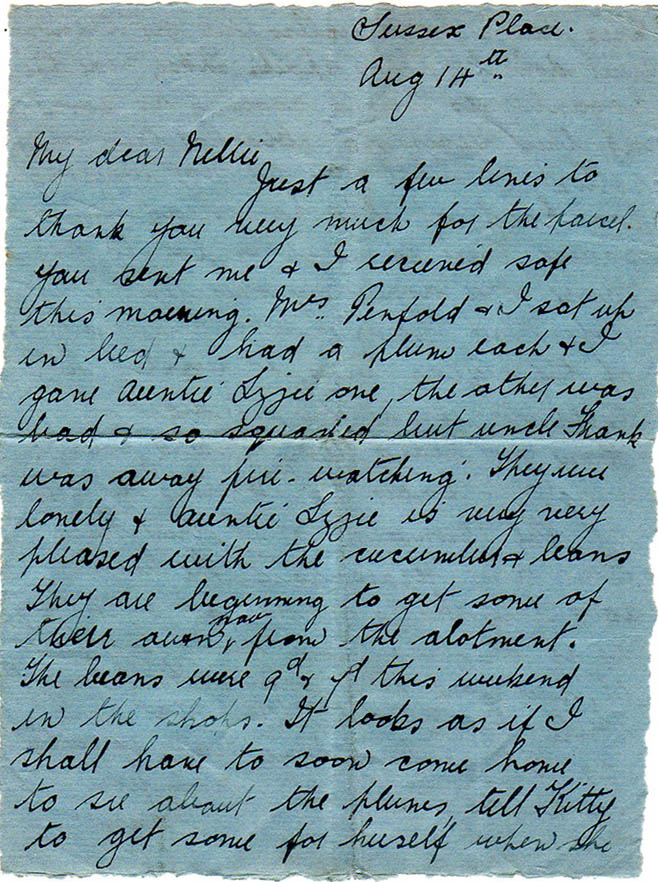 Sussex Place.
Aug 14th
My dear Nellie
Just a few lines to
thank you very much for the parcel.
you sent me & I received safe
this morning. Mrs Penfold & I sat up
in bed & had a plum each & I
gave Auntie Lizzie one, the other was
bad & so squashed but uncle Frank
was away fire-watching. They were
lonely & auntie Lizzie is very very
pleased with the cucumber & beans
They are beginning to get some of
their own now from the alotment.
The beans were 9d & this weekend
in the shops. It looks as if I
shall have to soon come home
to see about the plums, tell Kitty
to get some for herself when she